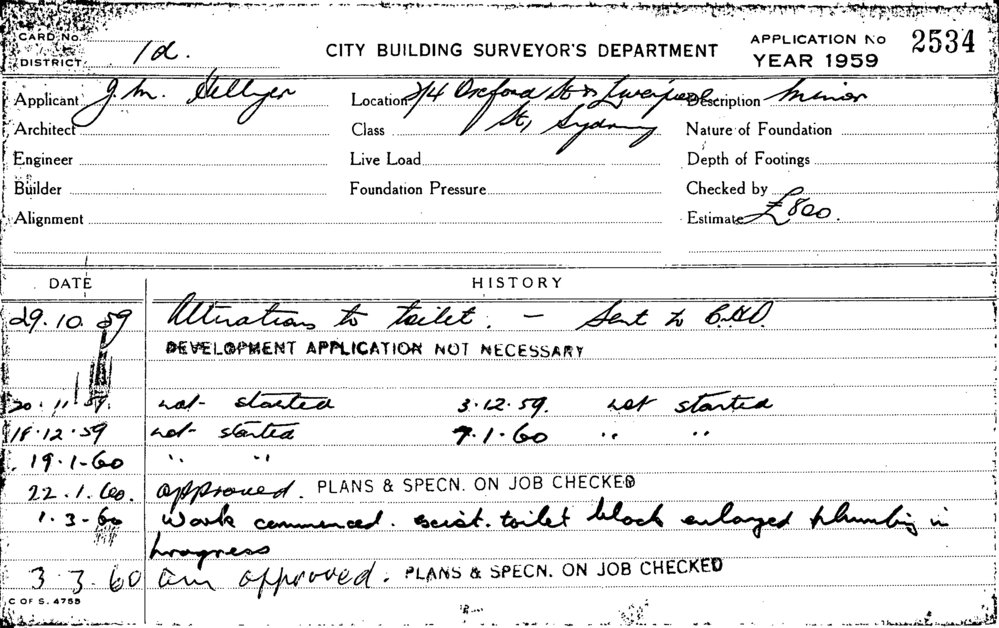 CARD No.
DISTRICT 1d.
CITY BUILDING SURVEYOR'S DEPARTMENT
APPLICATION No 2534
YEAR 1959
Applicant J. M. Hellyer Location 2/4 Oxford St & Liverpool Description Minor
Architect Class St, Sydney Nature of Foundation
Engineer Live Load Depth of Footings
Builder Foundation Pressure Checked by
Alignment Estimate £800.
DATE HISTORY
29.10.59 Alterations to toilet. - Sent to
DEVELOPMENT APPLICATION NOT NECESSARY
20.11.59. not started 3.12.59. not started
18.12.59 not started 7.1.60 " "
19.1.60 " "
22.1.60. approved. PLANS & SPECN. ON JOB CHECKED
1.3.60 Work commenced. exist. toilet block enlarged plumbing in
progress
3.3.60 am approved. PLANS & SPECN. ON JOB CHECKED
C OF S. 4755